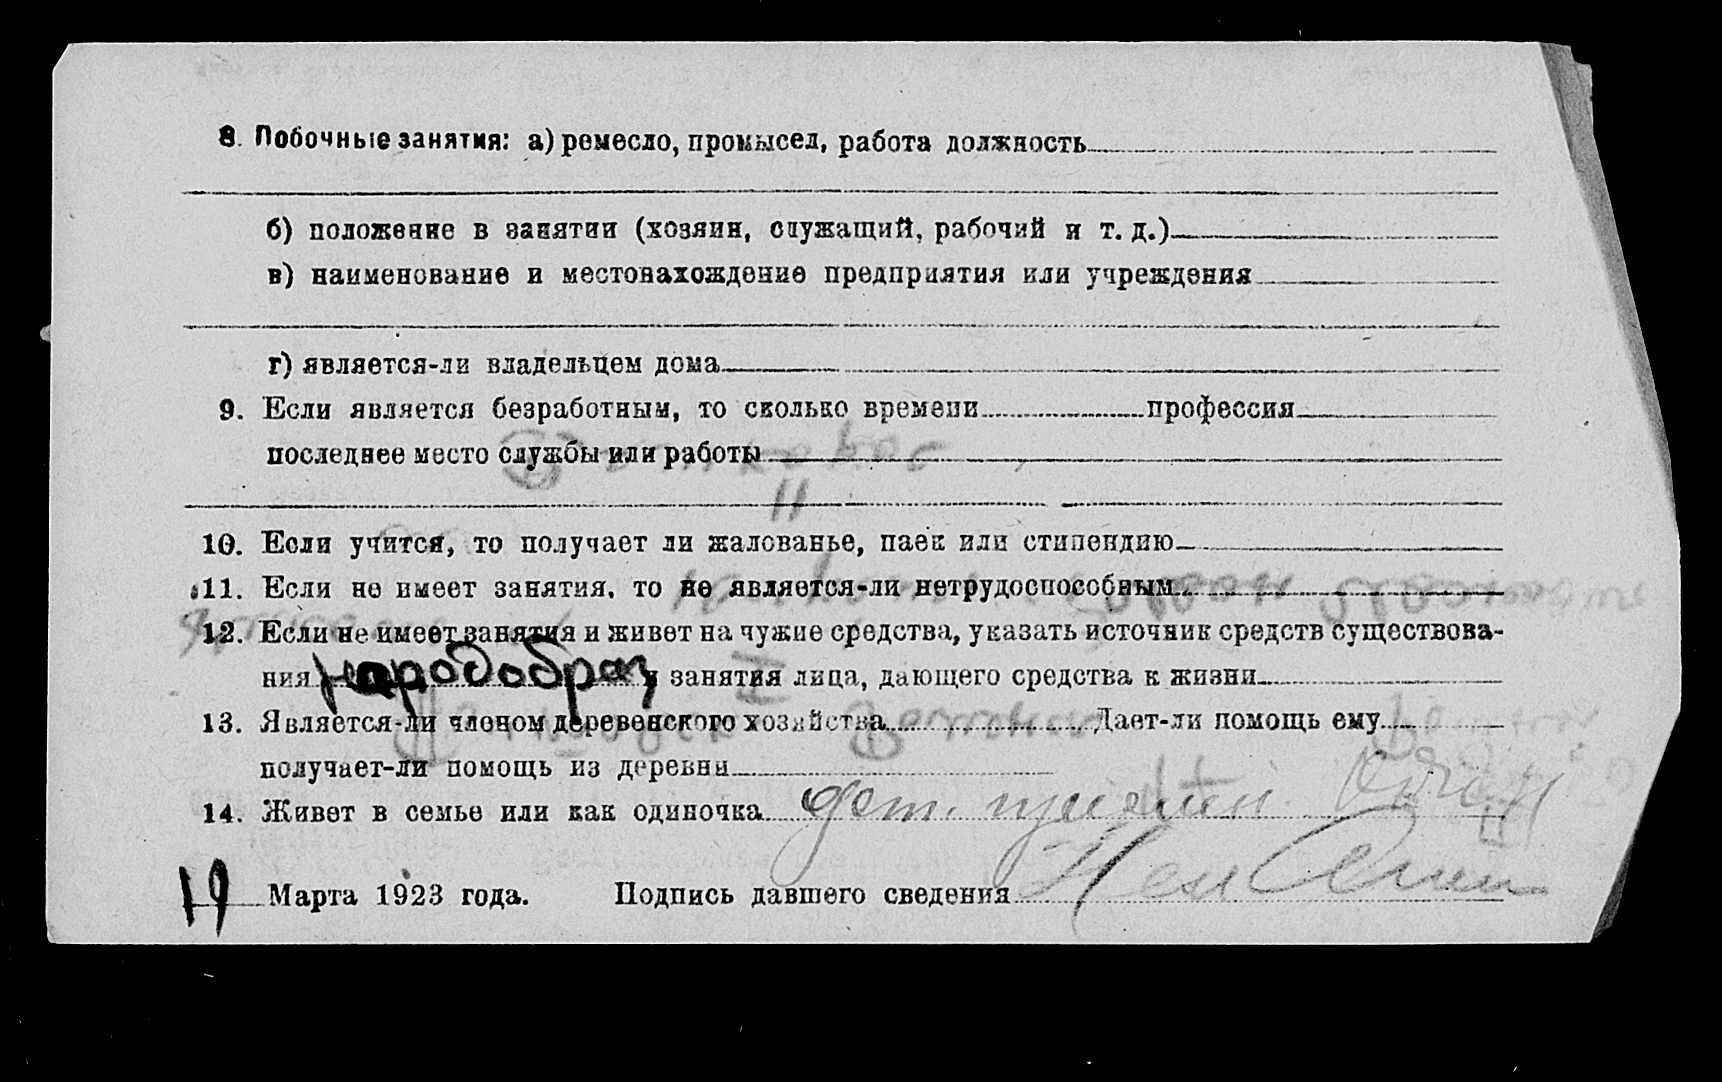 8. Побочные занятия: а) ремесло, промысел, работа должность
б) положение в занятии (хозяин, служащий, рабочий и т. д.)
в) наименование и местонахождение предприятия или учреждения
г) является-ли владельцем дома
9. Если является безработным, то сколько времени профессия
последнее место службы или работы
10. Если учится, то получает ли жалованье, паек или стипендию
11. Если не имеет занятия, то не является-ли нетрудоспособным
12. Если не имеет занятия и живет на чужие средства, указать источник средств существова-
ния Наробобраз и занятия лица, дающего средства к жизни
13. Является-ли членом деревенского хозяйства Дает-ли помощь ему
получает-ли помощь из деревни
14. Живет в семье или как одиночка дет.
19 Марта 1923 года. Подпись давшего сведения